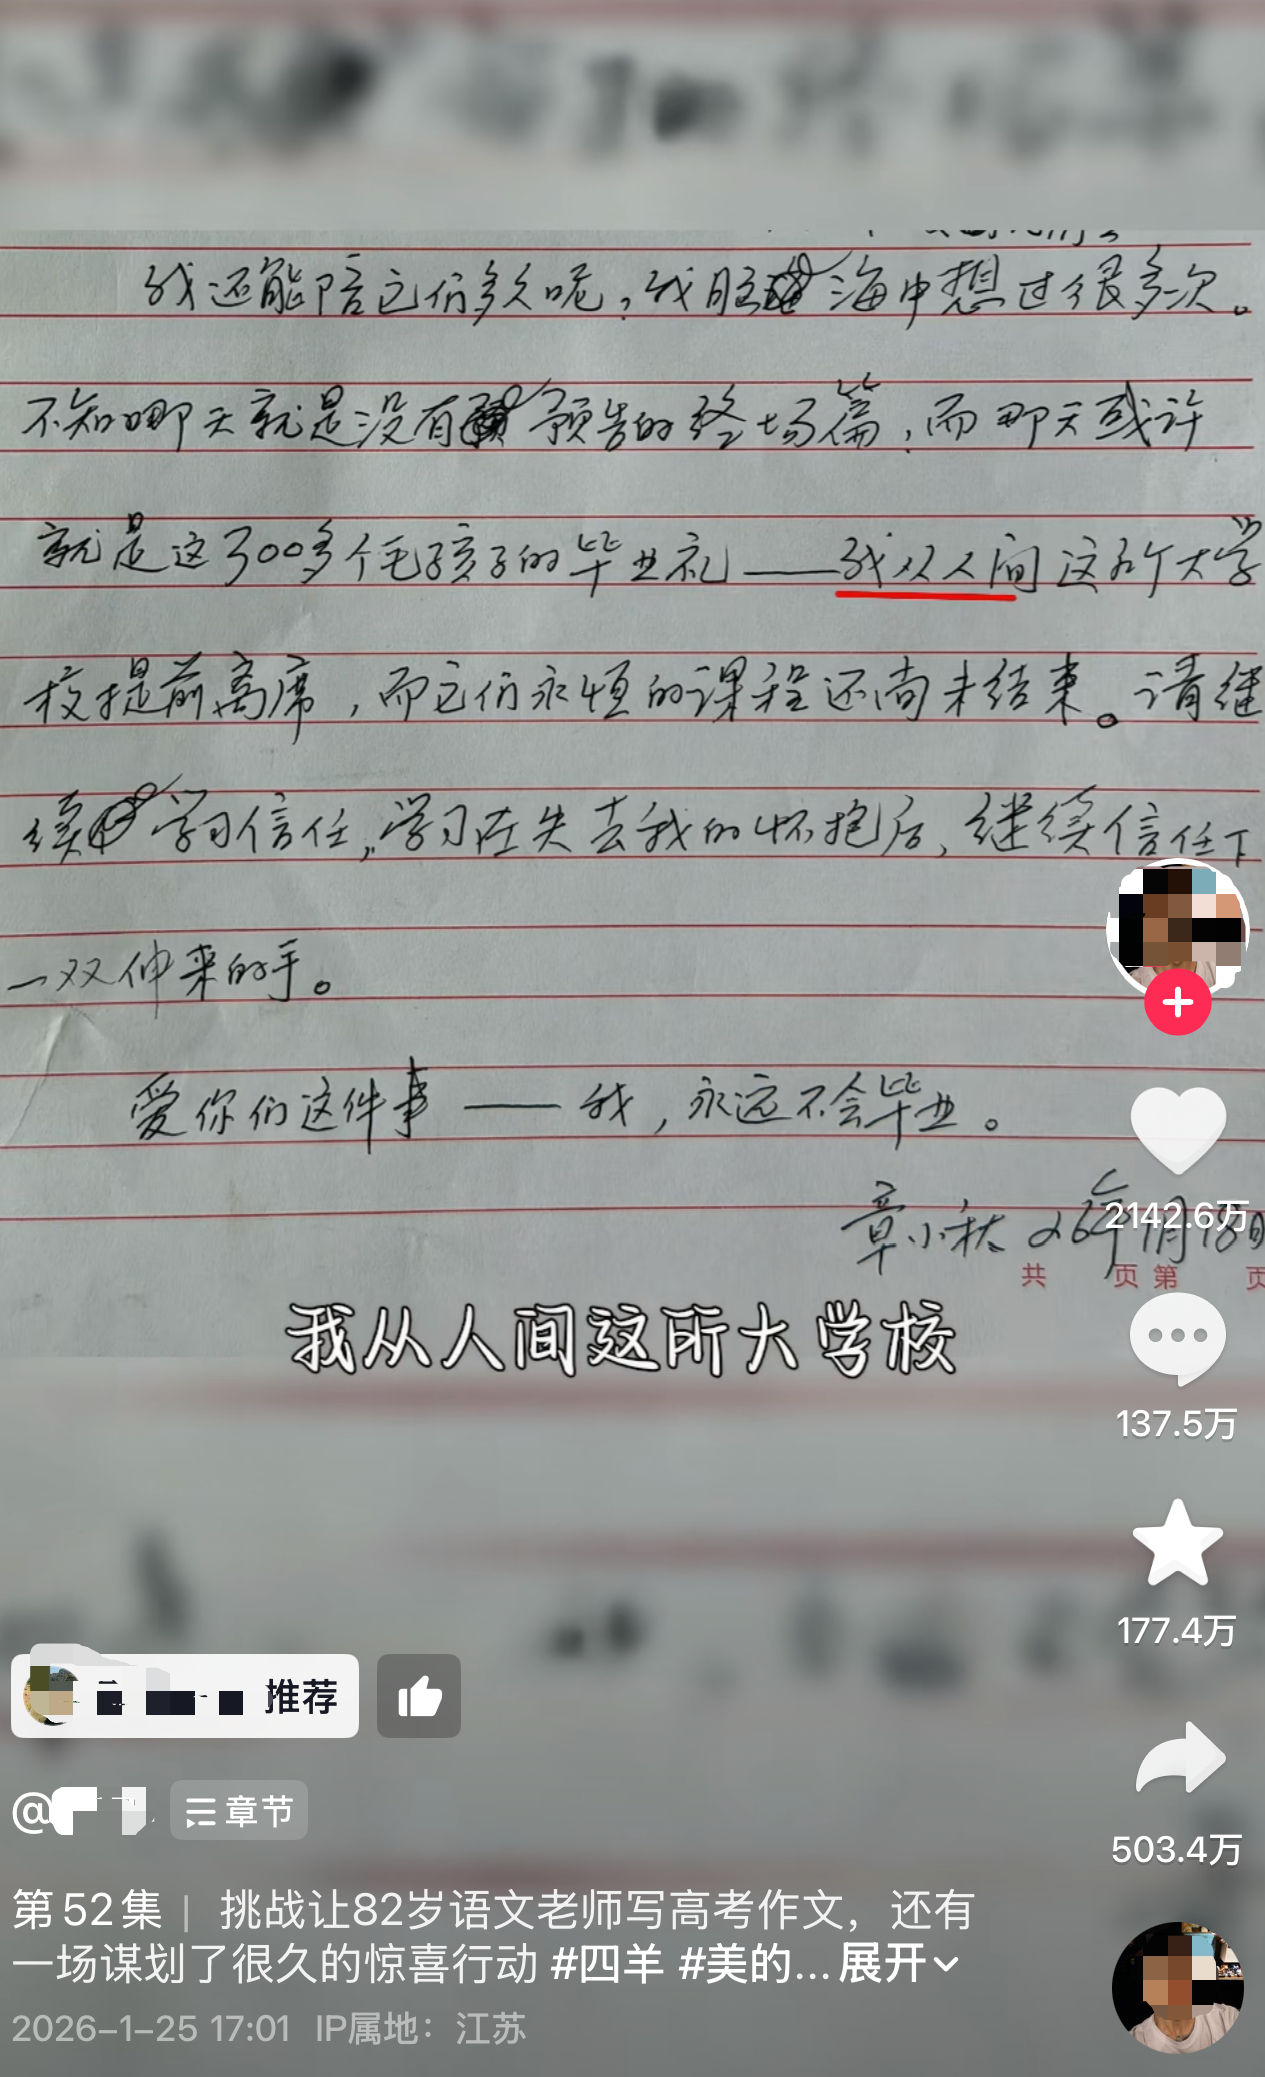 我还能陪它们多久呢,我脑海中想过很多次。
不知哪天就是没有预告的终场篇,而那天或许
就是这300多个毛孩子的毕业礼——我从人间这所大学
校提前离席,而它们永恒的课程还尚未结束。请继
续学习信任,学习在失去我的怀抱后,继续信任下
一双伸来的手。
爱你们这件事——我,永远不会毕业。
章小秋 26年1月18日
共 页 第 页
我从人间这所大学校
2142.6万
137.5万
177.4万
503.4万
推荐
@
章节
第52集｜ 挑战让82岁语文老师写高考作文，还有
一场谋划了很久的惊喜行动 #四羊 #美的...展开
2026-1-25 17:01 IP属地：江苏